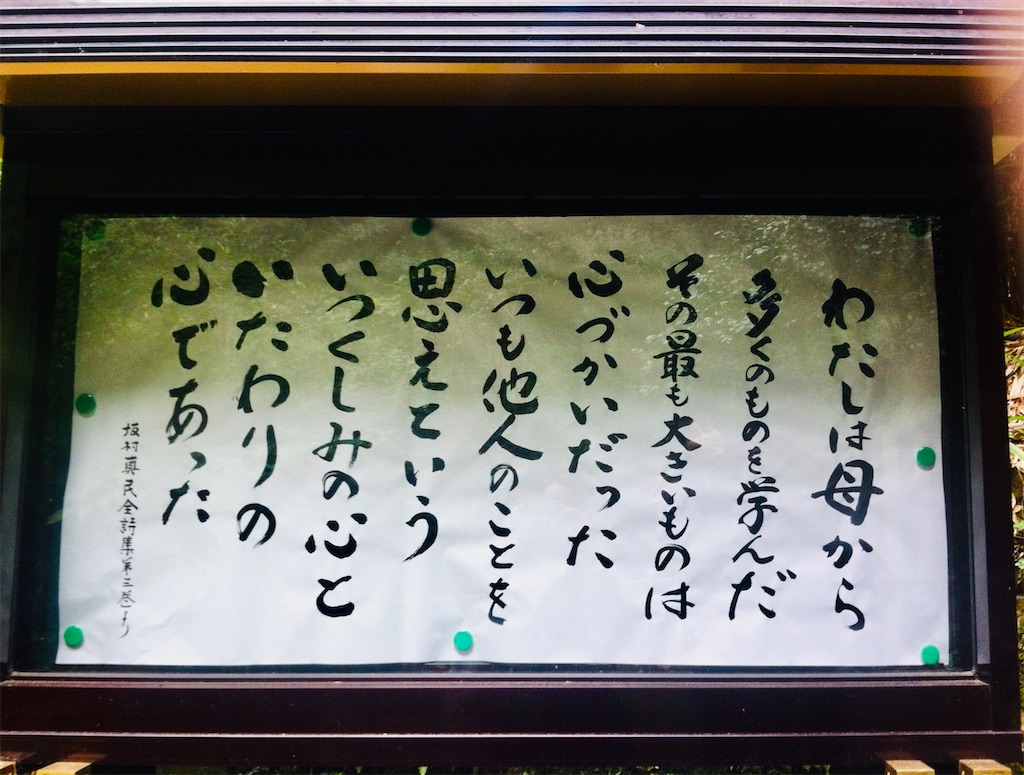 わたしは母から
多くのものを学んだ
その最も大きいものは
心づかいだった
いつも他人のことを
思えという
いつくしみの心と
いたわりの
心であった
坂村真民全詩集第三巻より